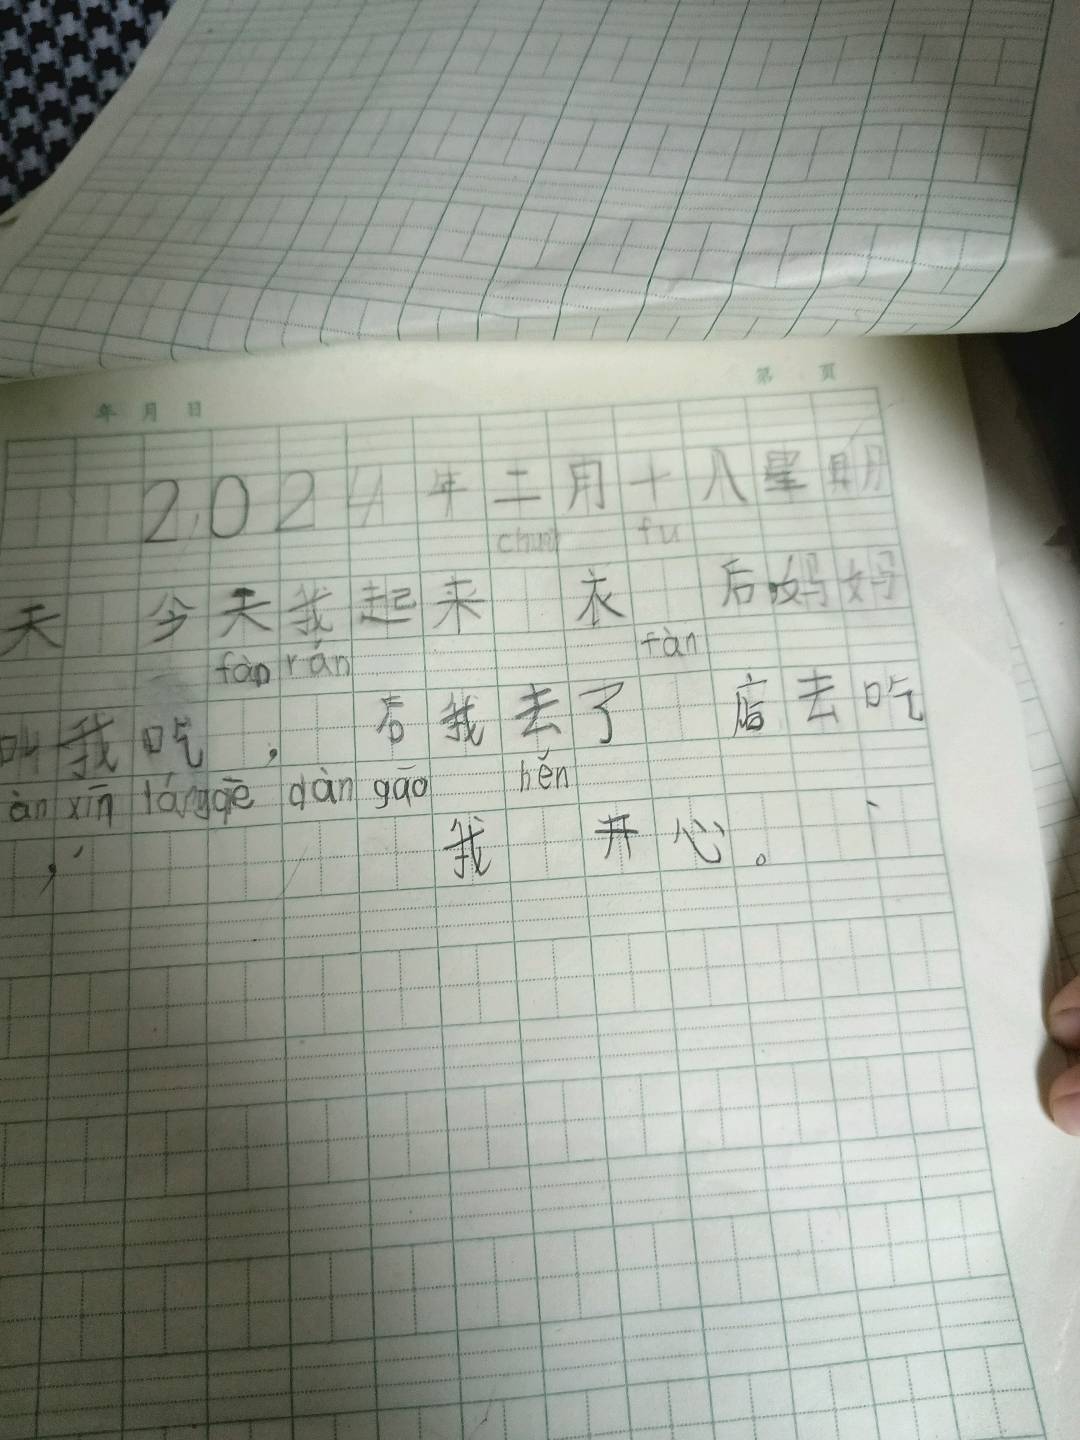 第 页
年 月 日
2024年二月十八星期
chuan fu
天 今天我起来 衣 后妈妈
fàn rán fàn
叫我吃 , 后我去了 店去吃
àn xīn dàn gāo hěn
, 我 开心。